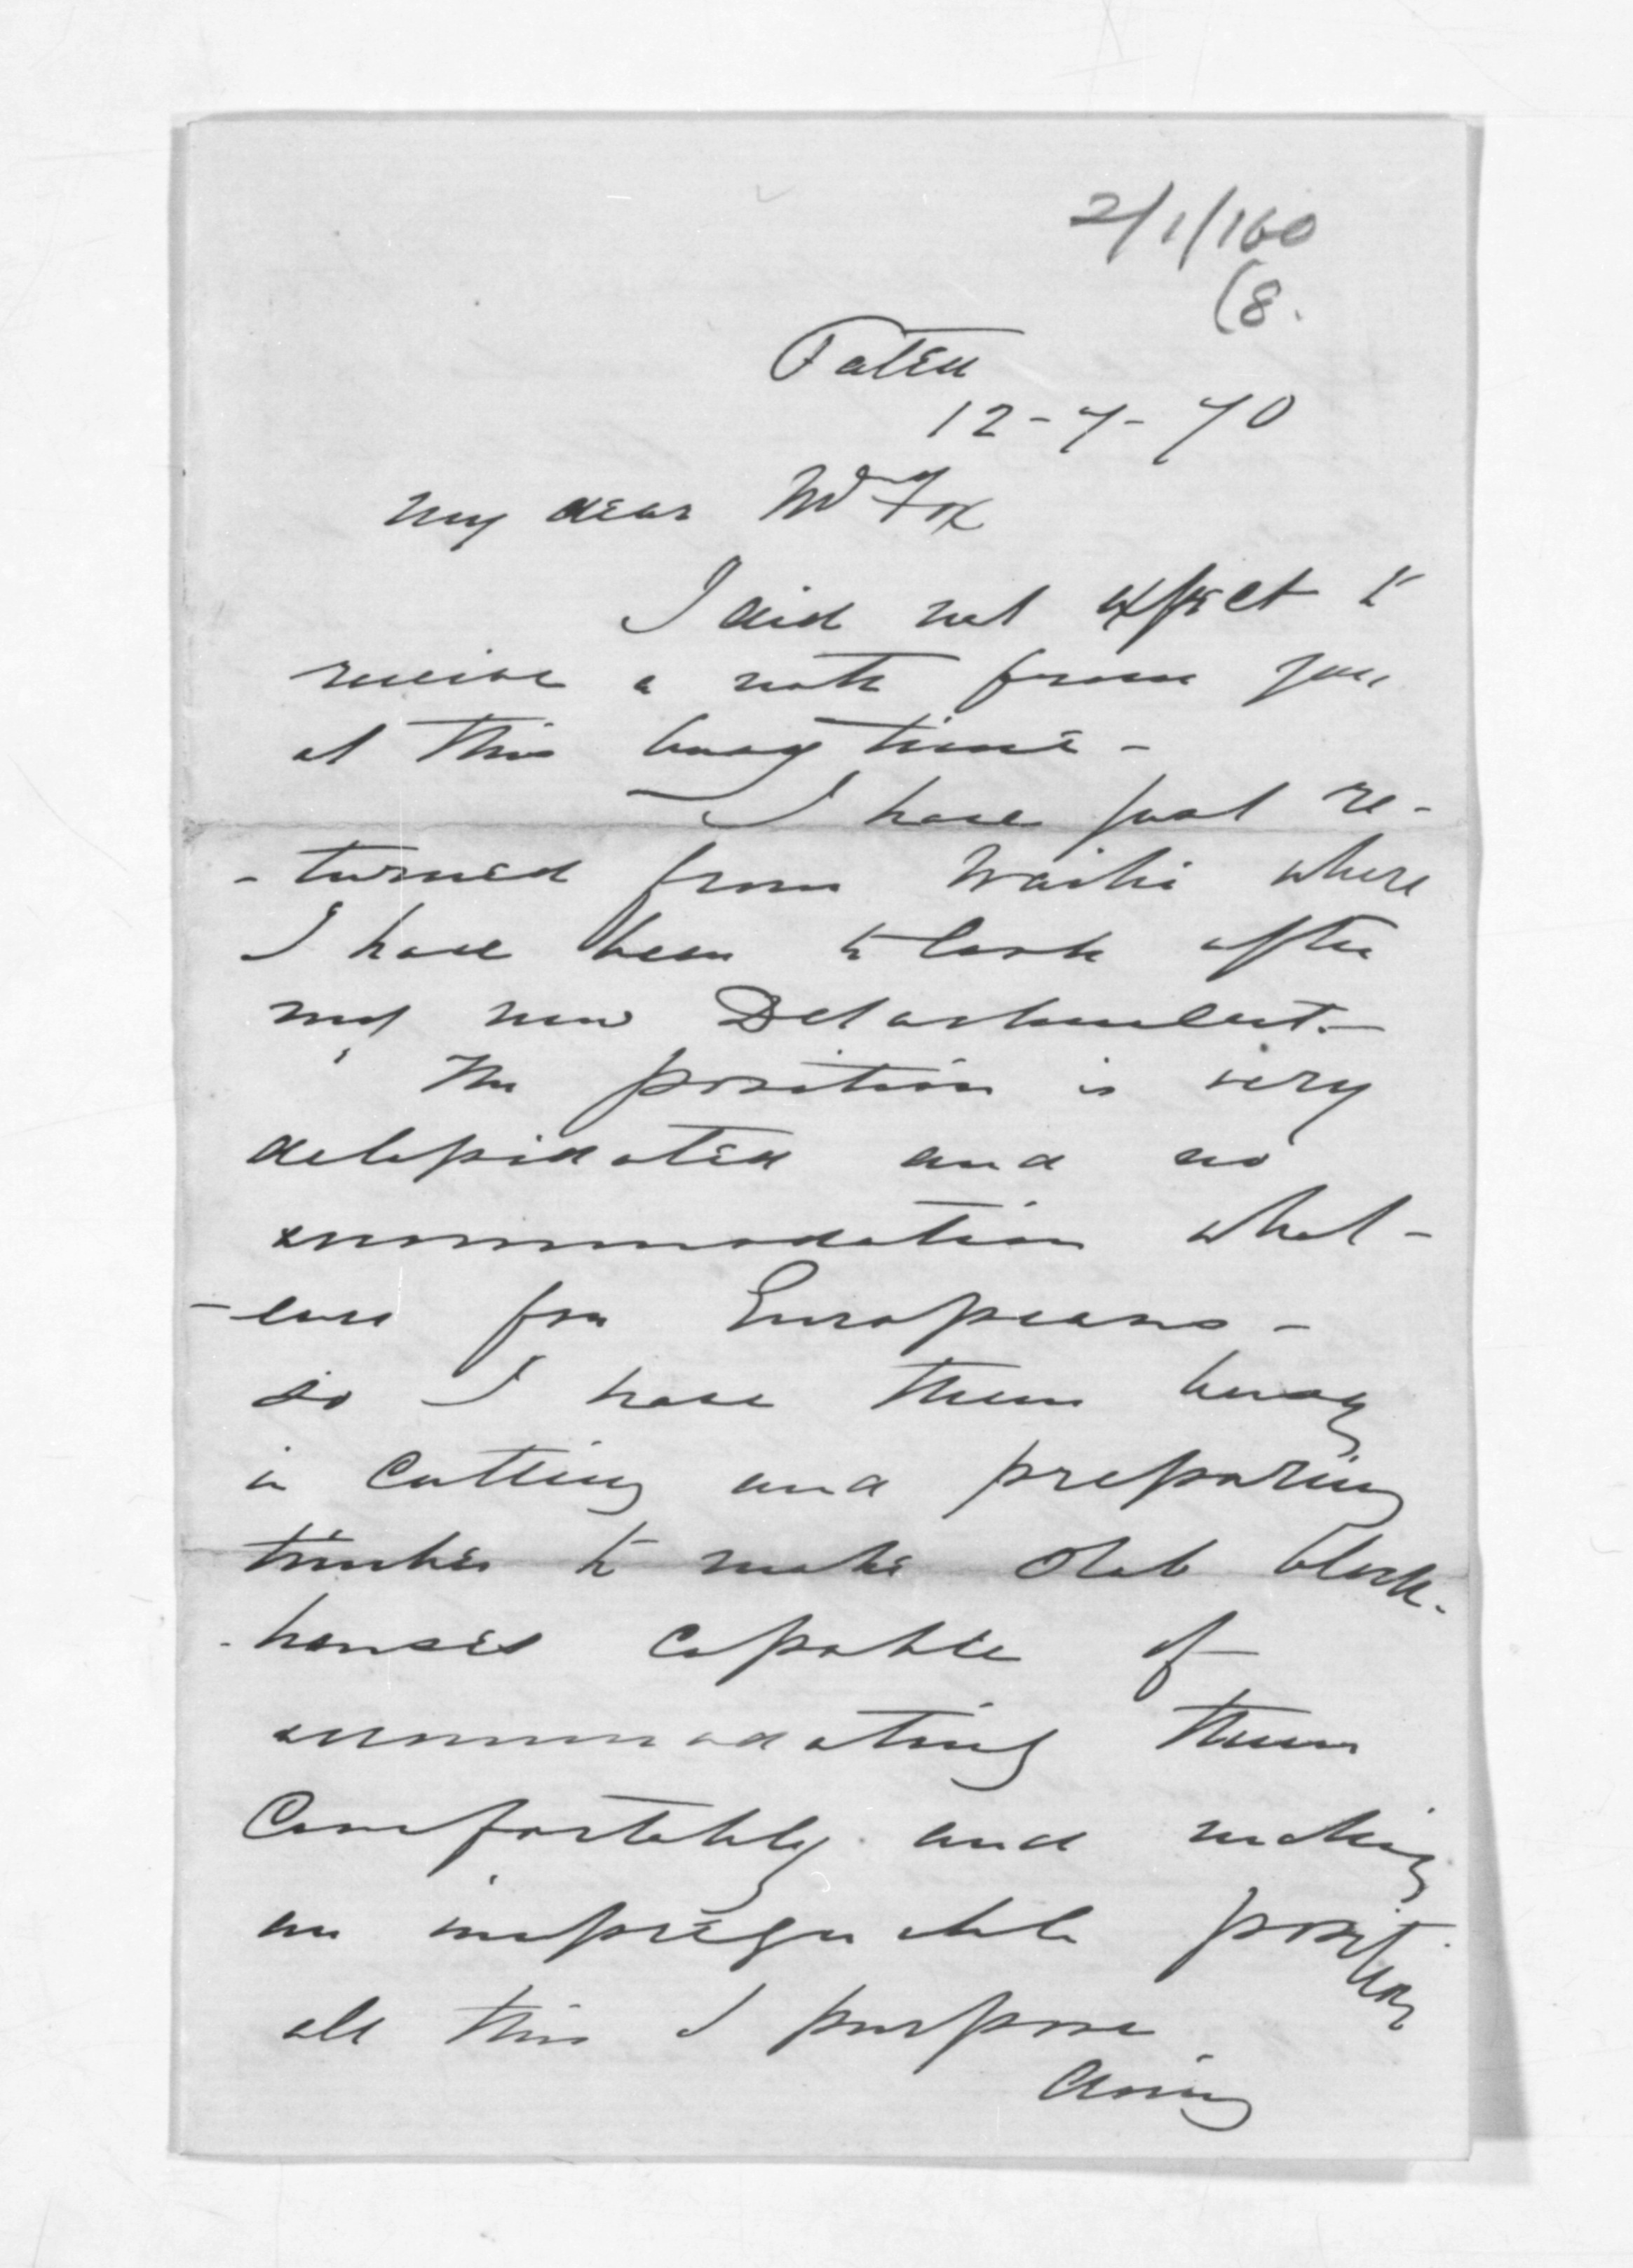 2/1/160
(8.
Patea
12-7-70
My dear Mr Fox
I did not expect to
receive a note from you
at this busy time -
I have just re-
-turned from Waihi where
I have been to look after
my new Detachment.-
The position is very
delapidated and no
accommodation what-
-ever for Europeans -
so I have them busy
in cutting and preparing
timber to make slab block-
-houses capable of
accommodating them
Comfortably and making
an impregnable position
all this I purpose
doing